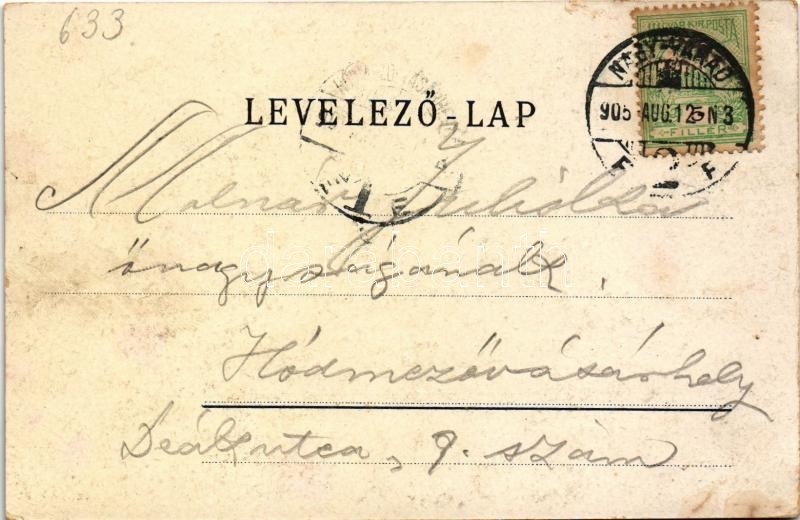 633
MAGYAR KIR. POSTA
NAGY-VÁRAD
905 AUG. 12 N3
FILLÉR
LEVELEZŐ-LAP
Molnár Juliska
őnagyságának.
Hódmezővásárhely
Deák utca, 9. szám